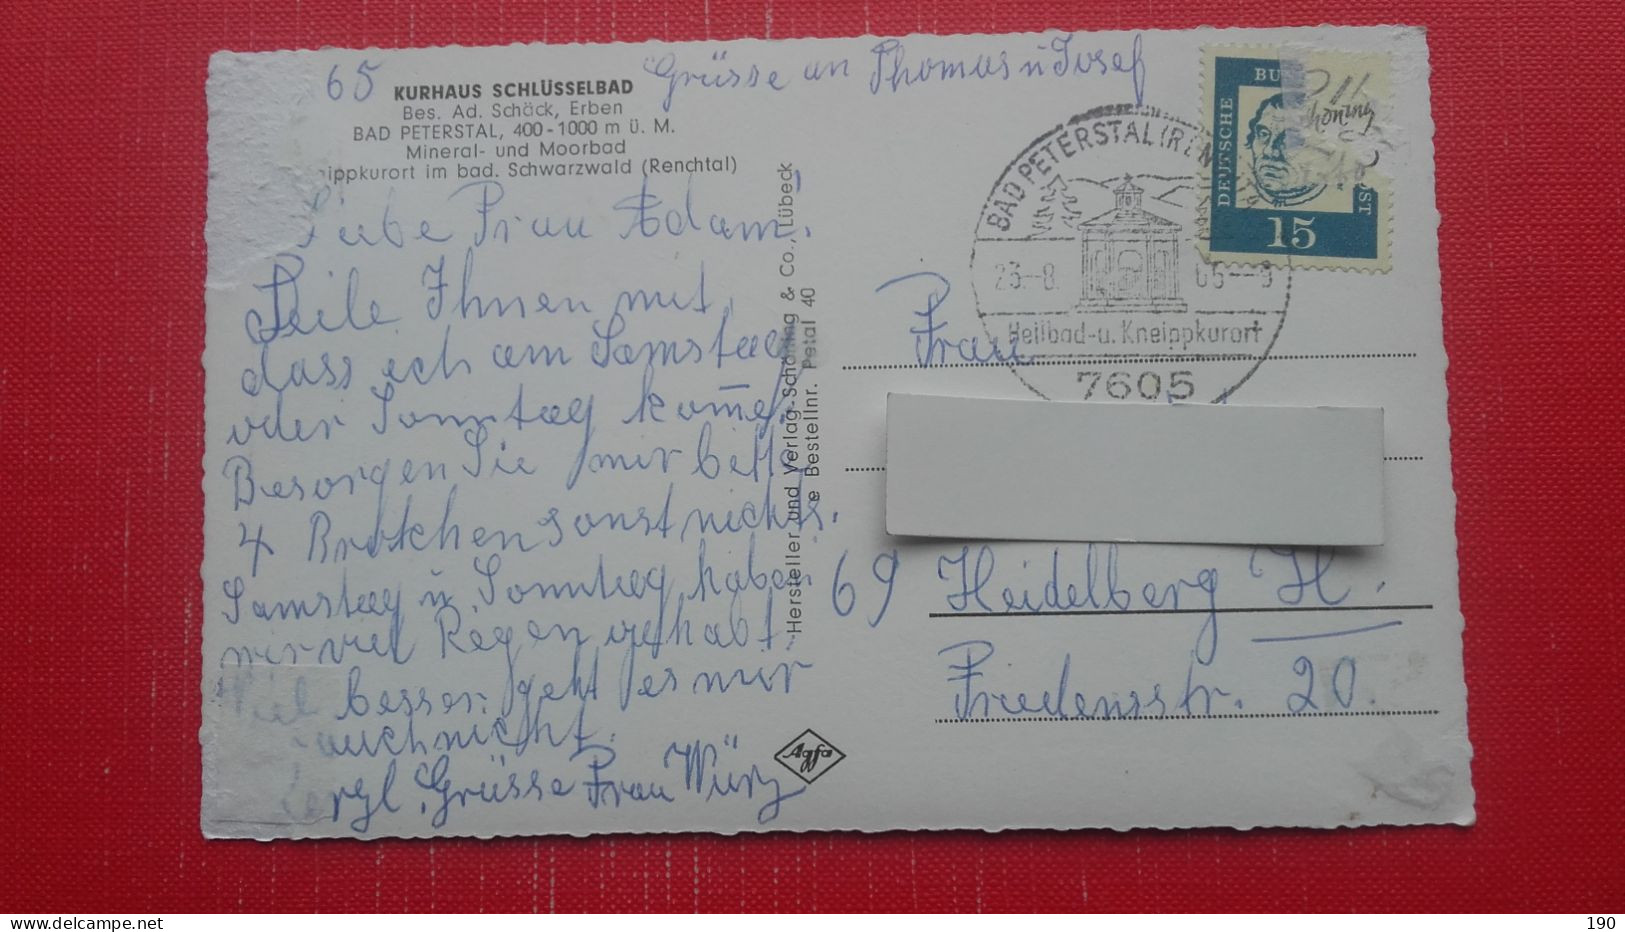 65
Grüsse an Thomas u Josef
KURHAUS SCHLÜSSELBAD
Bes. Ad. Schäck, Erben
BAD PETERSTAL, 400-1000 m ü. M.
Mineral- und Moorbad
ippkurort im bad. Schwarzwald (Renchtal)
Liebe Frau Adam!
Teile Ihnen mit,
dass ich am Samstag
oder Sonntag kom̄e.
Besorgen Sie mir bitte
4 Brötchen sonst nichts.
Samstag u Sonntag haben
wir viel Regen gehabt.
Viel besser geht es mir
auch nicht.
Herzl. Grüsse Frau Würz
Hersteller und Verlag Schöning & Co., Lübeck
e Bestellnr. Petal 40
Agfa
BAD PETERSTAL (RENCHTAL)
23.-8. 65--9
Heilbad-u. Kneippkurort
7605
DEUTSCHE
BU
ST
15
Frau
69 Heidelberg H.
Friedensstr. 20.
190